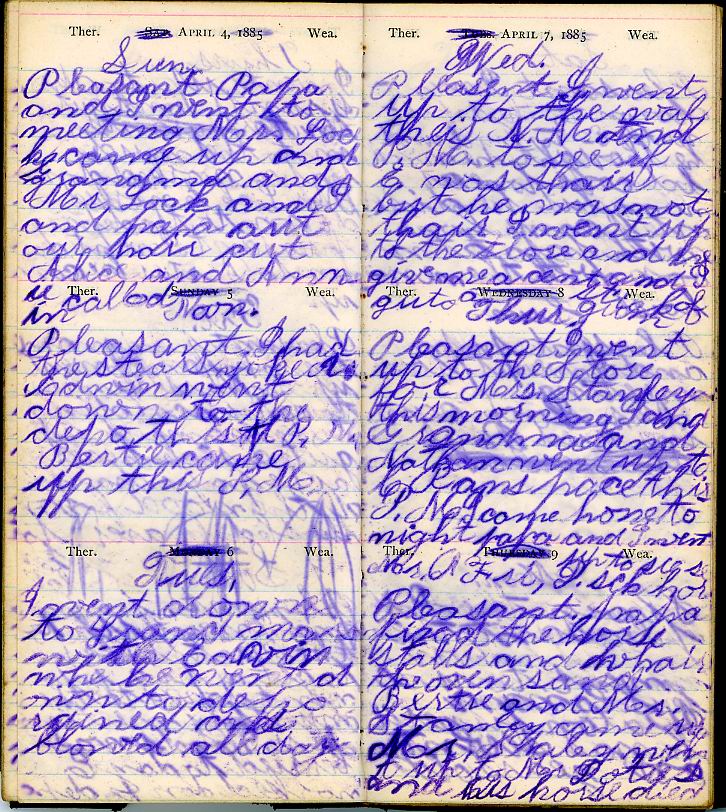 Ther. Sat. APRIL 4, 1885 Wea.
Sun.
Pleasant Papa
and I went to
meeting Mr. Loc
k came up and
grandma and
Mr Lock and I
and papa
our hair cut
Alice and Ann
ie called
in
Ther. SUNDAY 5 Wea.
Pleasant. I had
the stears yoked
Edwin went
down to the
depo this P. M.
Bertie came
up this P. M.
Ther. MONDAY 6 Wea.
Tues.
I went down
to Grand mars
with Edwin
when he went d
own to depo
rained and
blowd all day
Ther. Tues. APRIL 7, 1885 Wea.
Wed.
Pleasent I went
up to the
this A. M. and
P. M. to see if
E was thair
but he was not
thair I went up
to the Store and he
give me a cent and I
gut
Ther. WEDNESDAY 8 Wea.
Thur,
Pleasant I went
up to the Store
for Mrs. Stanley
this morning and
Grandma and
Nathan went up to
this
P. M. came home to
night papa and I went
up to
Mr. A
Ther. THURSDAY 9 Wea.
Fri,
Pleasant. papa
fixed the horse
stalls and
Bertie and Mrs.
Stanley came
Mr. went
up to Mr.
and his horse died